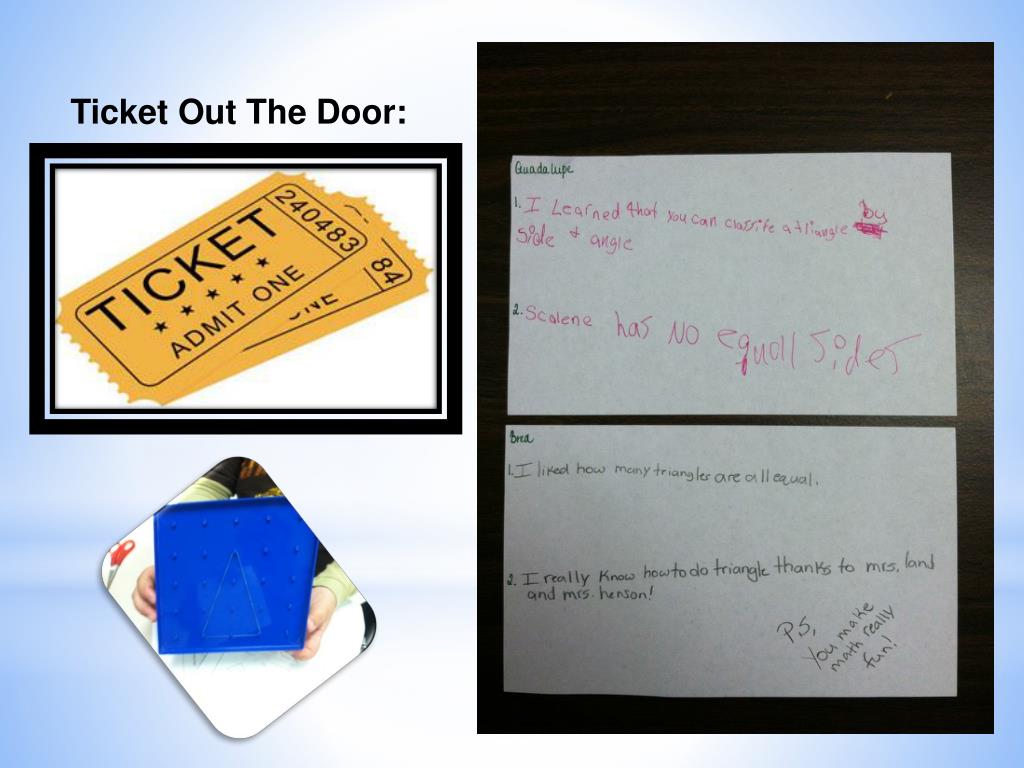 Ticket Out The Door:
TICKET
ADMIT ONE
240483
NE
84
Guadalupe
1. I Learned that you can classife a triangle by
side + angle
2. Scalene has no equall sides
Bred
1. I liked how many triangles are all equal.
2. I really know how to do triangle thanks to mrs. land
and mrs. henson!
P.S,
You make
math really
fun!